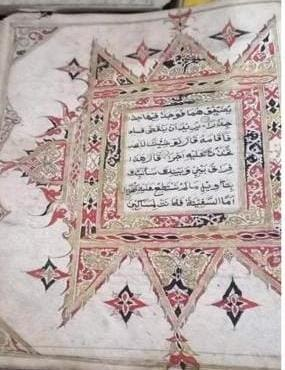 يضيفوهما فوجدا فيها
جدارا يريد ان ينقض
فاقامه قال لو شئت
عليه اجرا قال هذا
فراق بيني وبينك سانبئك
بتاويل ما لم تستطع عليه
اما السفينة فكانت لمساكين